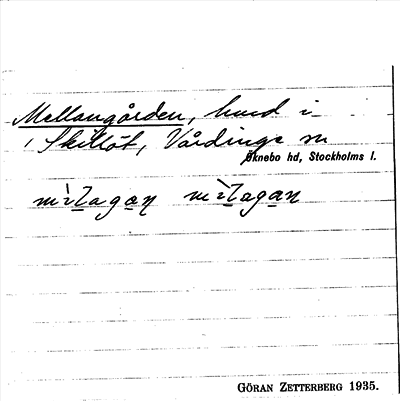 Mellangården, hmd i
Skillöt, Vårdinge sn
Öknebo hd, Stockholms l.
GÖRAN ZETTERBERG 1935.